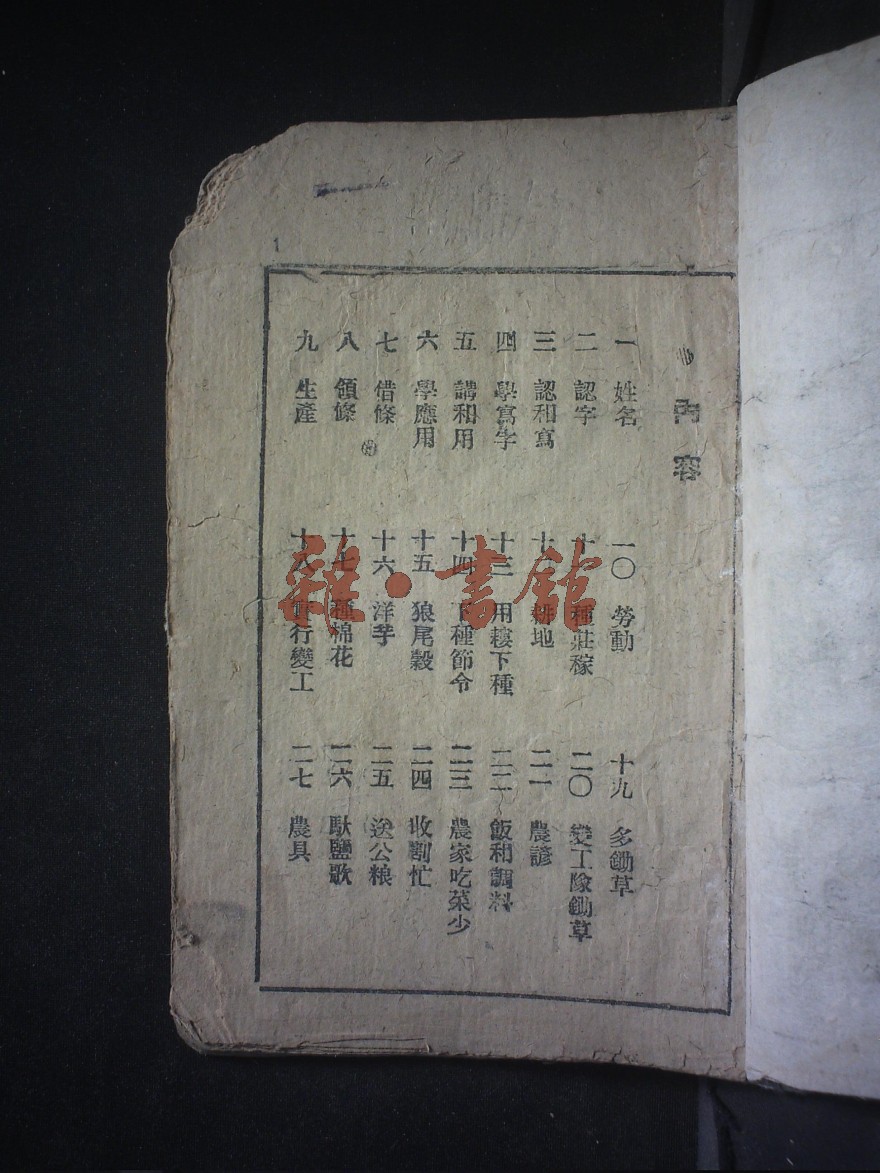 內容
一 姓名
二 認字
三 認和寫
四 學寫字
五 講和用
六 學應用
七 借條
八 領條
九 生產
一〇 勞動
十一 種莊稼
十二 耕地
十三 用耬下種
十四 下種節令
十五 狼尾穀
十六 洋芋
十七 種棉花
十八 實行變工
十九 多鋤草
二〇 變工隊鋤草
二一 農諺
二二 飯和調料
二三 農家吃菜少
二四 收割忙
二五 送公粮
二六 馱鹽歌
二七 農具
1
雜·書館